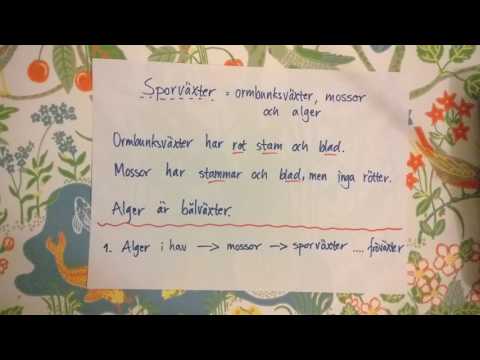 Sporväxter = ormbunksväxter, mossor
och alger
Ormbunksväxter har rot stam och blad.
Mossor har stammar och blad, men inga rötter.
Alger är bålväxter.
1. Alger i hav → mossor → sporväxter .... fröväxter